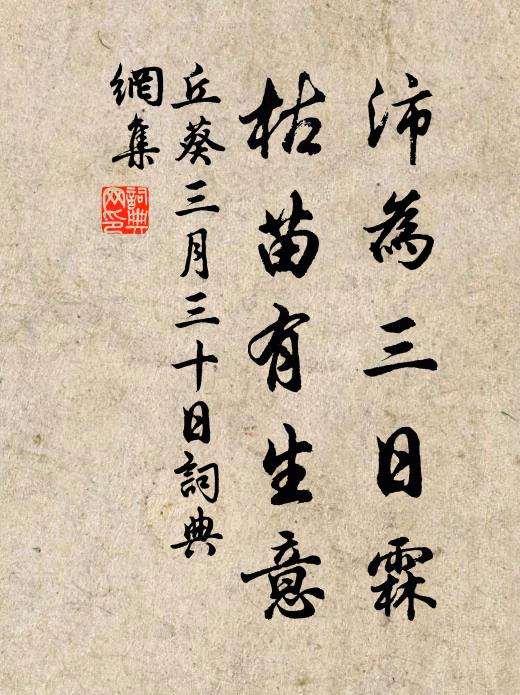 沛為三日霖
枯苗有生意
丘葵三月三十日詞典
網集
詞典
网印